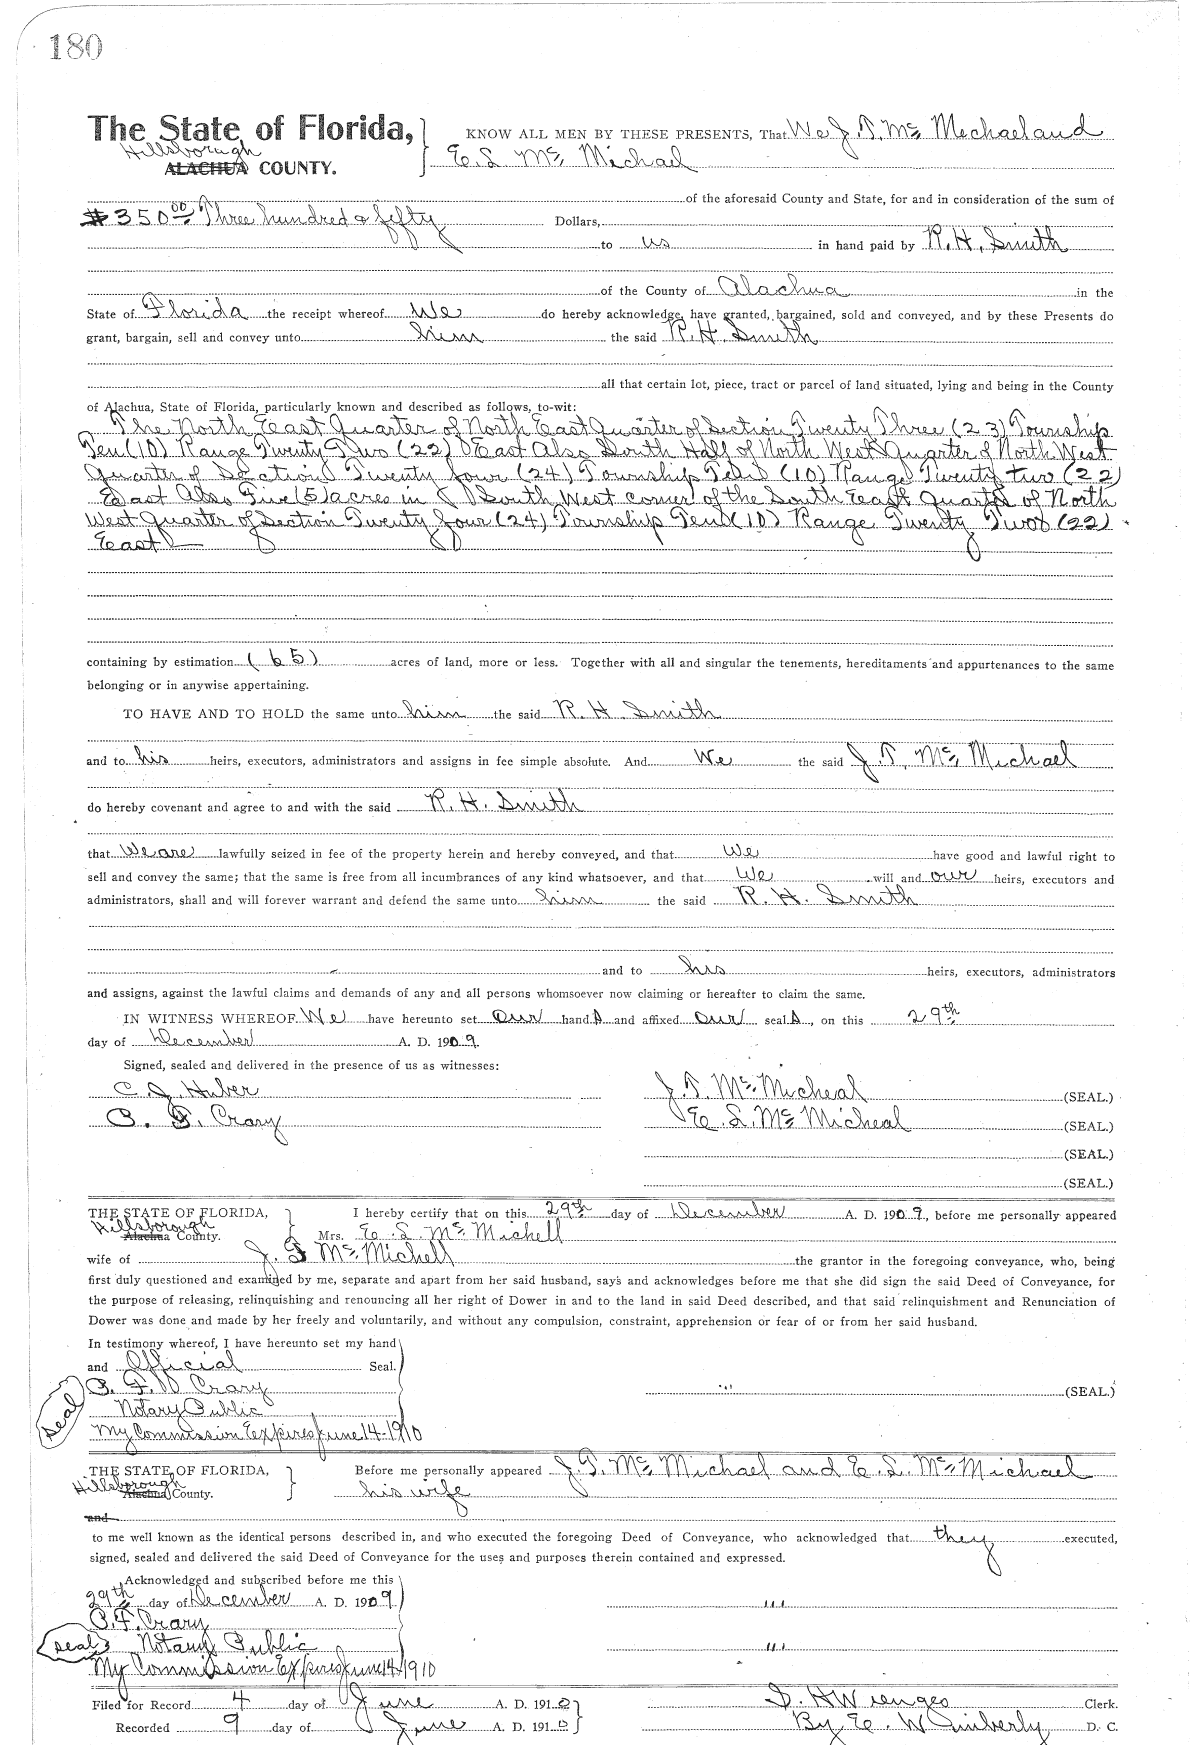 180
The State of Florida,
Hillsborough
ALACHUA COUNTY.
KNOW ALL MEN BY THESE PRESENTS, That We J. T. Mc Mechael and
E. L Mc Michael
of the aforesaid County and State, for and in consideration of the sum of
$350 00 Three hundred & fifty Dollars,
to us in hand paid by R. H. Smith
of the County of Alachua in the
State of Florida the receipt whereof We do hereby acknowledge, have granted, bargained, sold and conveyed, and by these Presents do
grant, bargain, sell and convey unto him the said R. H. Smith
all that certain lot, piece, tract or parcel of land situated, lying and being in the County
of Alachua, State of Florida, particularly known and described as follows, to-wit:
The North East Quarter of North East Quarter of Section Twenty Three (23) Township
Ten (10) Range Twenty Two (22) East Also South Half of North West Quarter of North West
Quarter of Section Twenty four (24) Township Ten (10) Range Twenty two (22)
East Also Five (5) acres in South West corner of the South East Quarter of North
West Quarter of Section Twenty four (24) Township Ten (10) Range Twenty Two (22)
East
containing by estimation (65) acres of land, more or less. Together with all and singular the tenements, hereditaments and appurtenances to the same
belonging or in anywise appertaining.
TO HAVE AND TO HOLD the same unto him the said R. H. Smith
and to his heirs, executors, administrators and assigns in fee simple absolute. And We the said J. T. Mc Michael
do hereby covenant and agree to and with the said R. H. Smith
that We are lawfully seized in fee of the property herein and hereby conveyed, and that We have good and lawful right to
sell and convey the same; that the same is free from all incumbrances of any kind whatsoever, and that We will and our heirs, executors and
administrators, shall and will forever warrant and defend the same unto him the said R. H. Smith
and to his heirs, executors, administrators
and assigns, against the lawful claims and demands of any and all persons whomsoever now claiming or hereafter to claim the same.
IN WITNESS WHEREOF We have hereunto set our hand s and affixed our seal s, on this 29th
day of December A. D. 1909.
Signed, sealed and delivered in the presence of us as witnesses:
C. J. Huber J. T. Mc Micheal (SEAL.)
C. F. Crary E. L. Mc Micheal (SEAL.)
(SEAL.)
(SEAL.)
THE STATE OF FLORIDA,
Hillsborough
Alachua County.
I hereby certify that on this 29th day of December A. D. 1909, before me personally appeared
Mrs. E. L. Mc Michell
wife of J. T Mc Michell the grantor in the foregoing conveyance, who, being
first duly questioned and examined by me, separate and apart from her said husband, says and acknowledges before me that she did sign the said Deed of Conveyance, for
the purpose of releasing, relinquishing and renouncing all her right of Dower in and to the land in said Deed described, and that said relinquishment and Renunciation of
Dower was done and made by her freely and voluntarily, and without any compulsion, constraint, apprehension or fear of or from her said husband.
In testimony whereof, I have hereunto set my hand
and Official Seal.
C. F. Crary (SEAL.)
seal
Notary Public
My Commission Expires June 14-1910
THE STATE OF FLORIDA,
Hillsborough
Alachua County.
Before me personally appeared J. T. Mc Michael and E. L. Mc Michael
his wife
and
to me well known as the identical persons described in, and who executed the foregoing Deed of Conveyance, who acknowledged that they executed,
signed, sealed and delivered the said Deed of Conveyance for the uses and purposes therein contained and expressed.
Acknowledged and subscribed before me this
29th day of December A. D. 1909
C. F. Crary
seal Notary Public
My Commission Expires June 14-1910
Filed for Record 4 day of June A. D. 1910 S. H Wienges Clerk.
Recorded 9 day of June A. D. 1910 By E. Wimberly D. C.